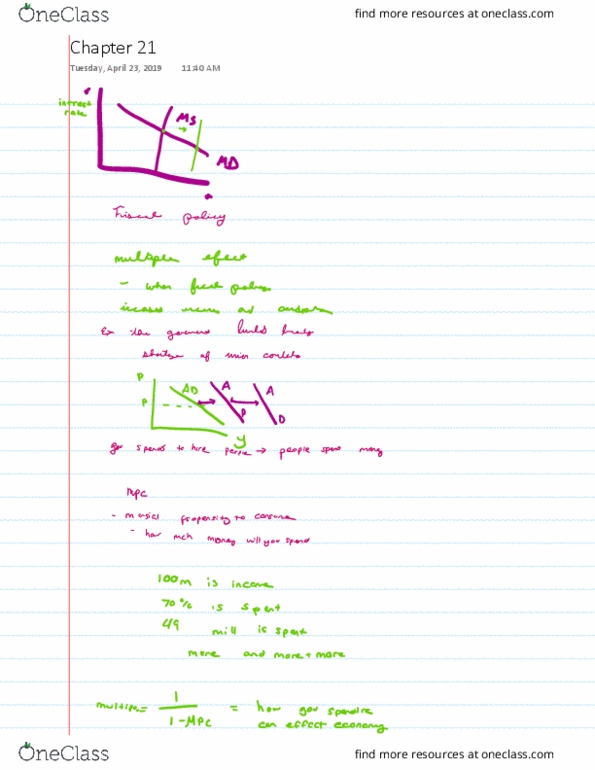 OneClass
find more resources at oneclass.com
Chapter 21
Tuesday, April 23, 2019 11:40 AM
interest
rate
MS
MD
Fiscal policy
multiplier effect
- when fiscal policy
Ex the government builds
shortage of
P
AD A A
P
D D
y
gov spends to hire people → people spend money
MPC
- propensity to consume
- how mch money will you spend
100m is income
70% is spent
49 mill is spent
more and more + more
1
= = how gov
1-MPC can effect economy
OneClass
find more resources at oneclass.com